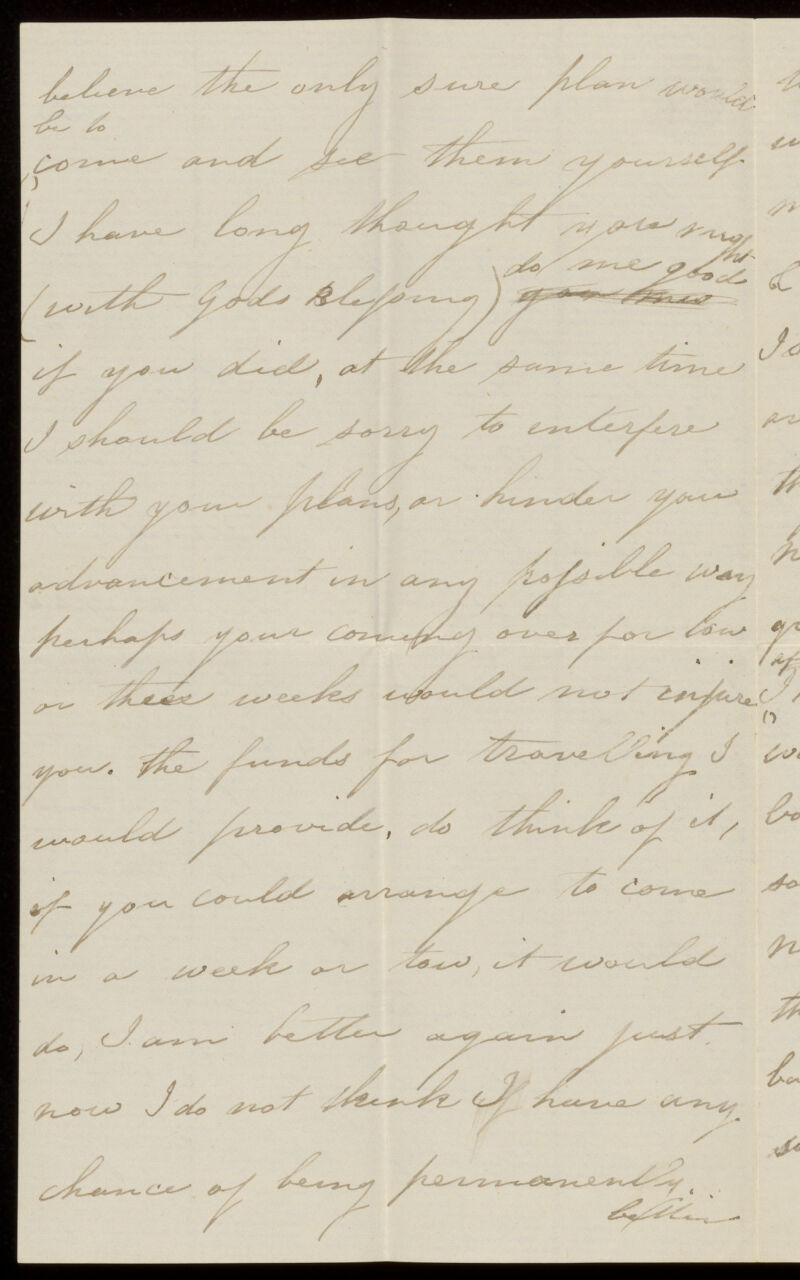 believe the only sure plan would
be to
come and see them yourself
I have long thought you might
do me good
(with Gods Blessing)
if you did, at the same time
I should be sorry to interfere
with your plans, or hinder your
advancement in any possible way
perhaps your coming over for tow
or three weeks would not injure
you. the funds for travelling I
would provide, do think of it,
if you could arrange to come
in a week or tow, it would
do, I am better again just
now I do not think I have any
chance of being permanently
better